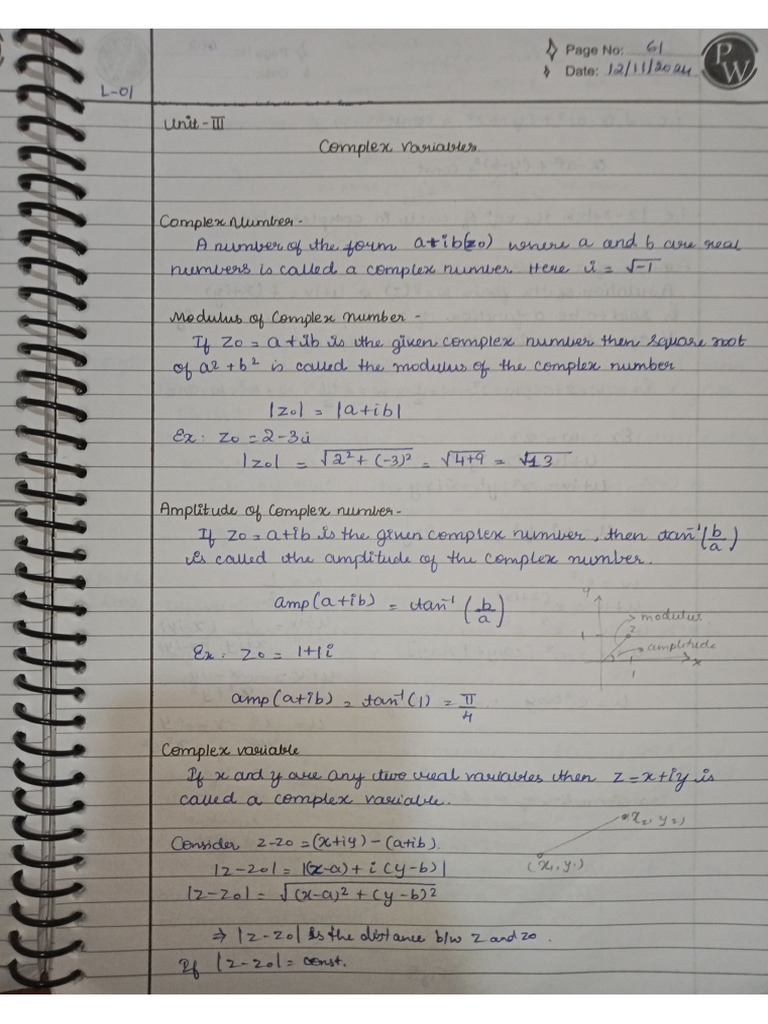 Page No: 61
Date: 12/11/2024
PW
L-01
Unit-III
Complex Variables
Complex Number -
A number of the form a+ib(z0) where a and b are real
numbers is called a complex number. Here i = √-1
Modulus of Complex number -
If z0 = a+ib is the given complex number then square root
of a²+b² is called the modulus of the complex number
|z0| = |a+ib|
Ex: z0 = 2-3i
|z0| = √2²+(-3)² = √4+9 = √13
Amplitude of Complex number -
If z0 = a+ib is the given complex number, then tan⁻¹(b/a)
is called the amplitude of the complex number.
amp(a+ib) = tan⁻¹(b/a)
y
modulus
z
1
amplitude
x
1
1
Ex: z0 = 1+1i
amp(a+ib) = tan⁻¹(1) = π/4
Complex variable
If x and y are any two real variables then z = x+iy is
called a complex variable.
Consider z-z0 = (x+iy) - (a+ib).
(x2, y2)
|z-z0| = |(x-a) + i(y-b)|
(x1, y1)
|z-z0| = √(x-a)² + (y-b)²
⇒ |z-z0| is the distance b/w z and z0.
If |z-z0| = const.